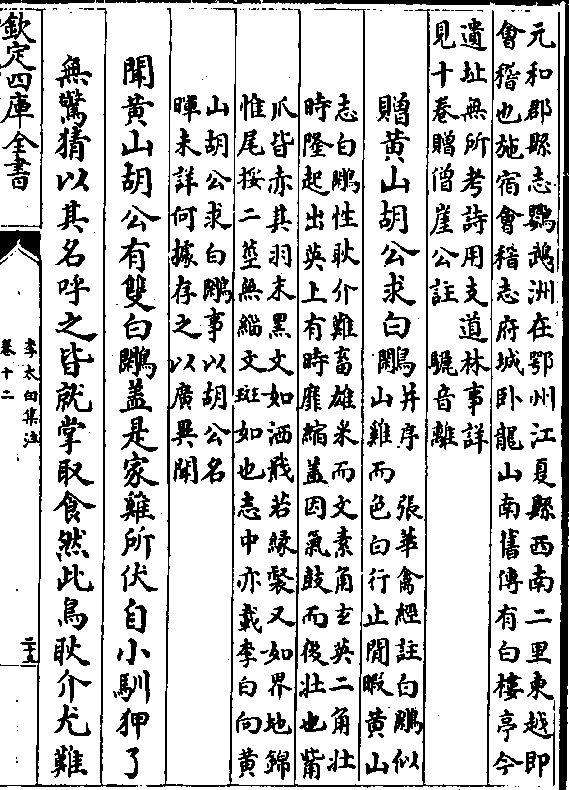 元和郡縣志鸚鵡洲在鄂州江夏縣西南二里東越即
會稽也施宿會稽志府城卧龍山南舊傳有白樓亭今
遺址無所考詩用支道林事詳
見十卷贈僧崖公註 驪音離
贈黄山胡公求白鷴并序
張華禽經註白鷴似
山雞而色白行止閒暇黄山
志白鷴性耿介難畜雄米而文素角玄英二角壯
時隆起出英上有時靡縮蓋因氣鼓而後壯也觜
爪皆赤其羽末黑文如洒戕若緣褧又如界地錦
惟尾挼二莖無緇文斑如也志中亦載李白向黄
山胡公求白鷴事以胡公名
暉未詳何據存之以廣異聞
聞黄山胡公有雙白鷴蓋是家雞所伏自小馴狎了
無驚猜以其名呼之皆就掌取食然此鳥耿介尤難
欽定四庫全書
李太白集注
卷十二
二十五